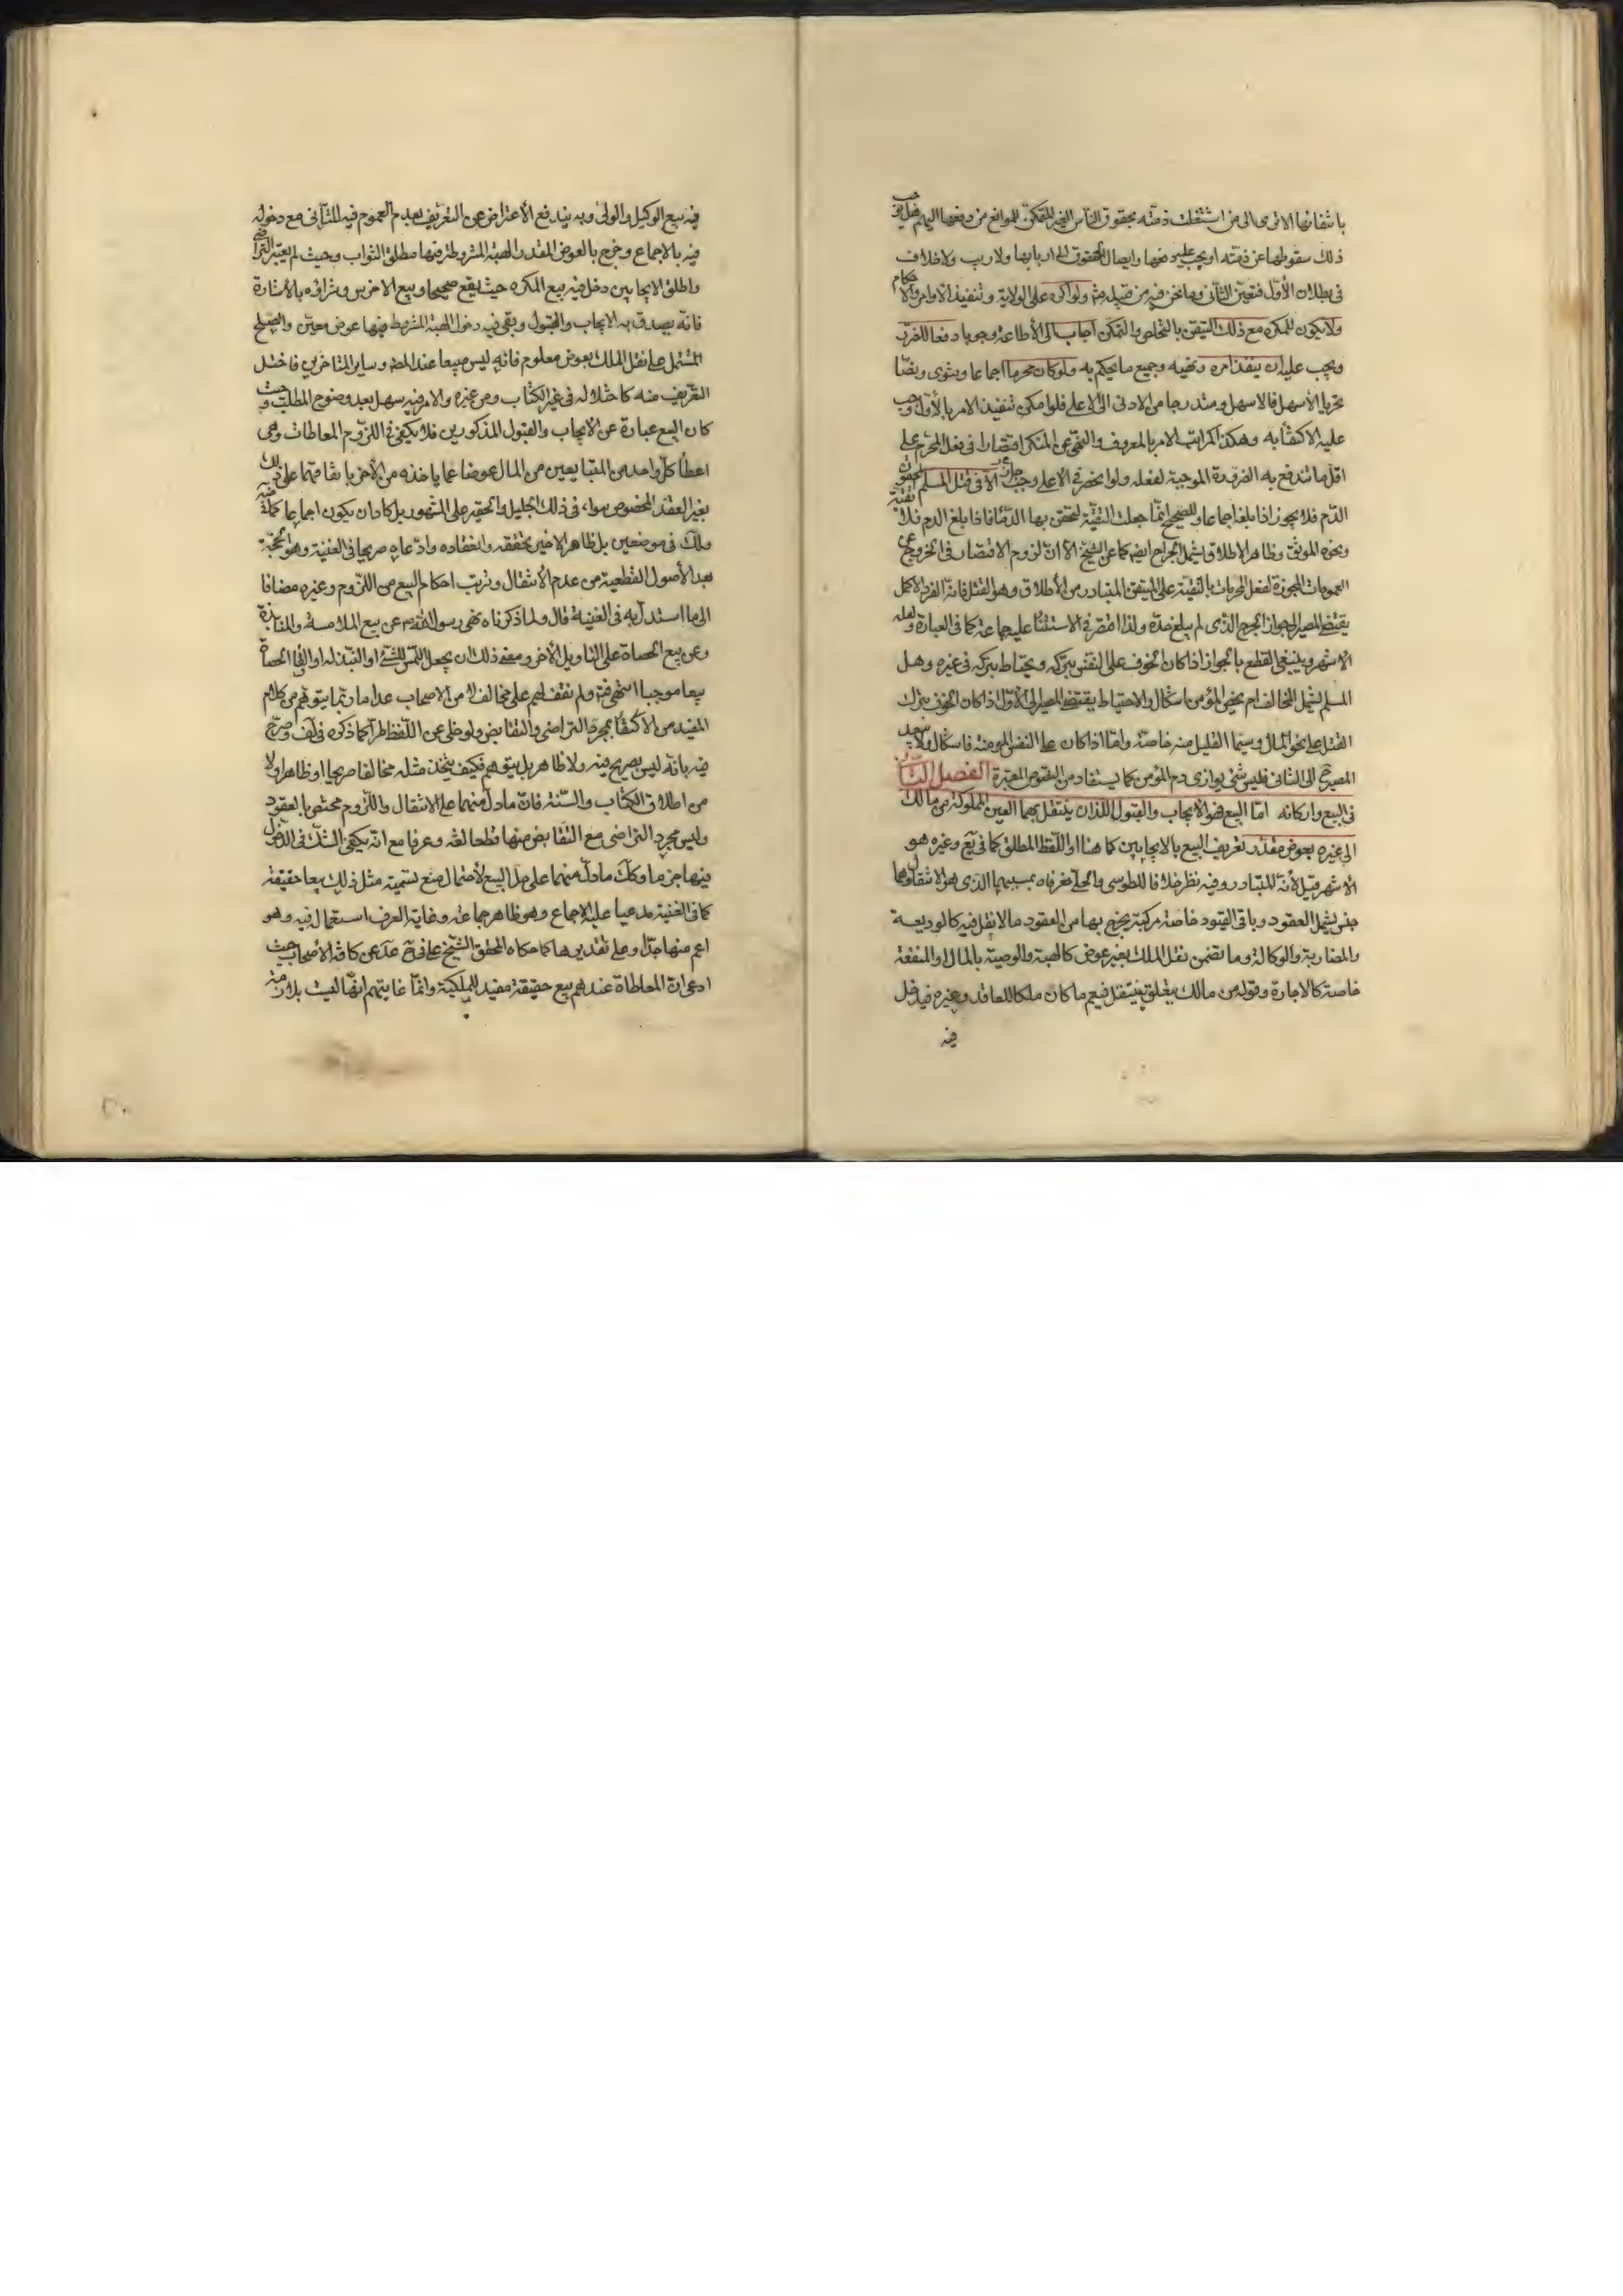 بانتفائها الا ترى الى من اشتغلت ذمته بحقوق الناس الغير المتمكن لموانع من دفعها اليهم فهل يوجب
ذلك سقوطها عن ذمته او يجب عليه دفعها وايصال الحقوق الى اربابها ولا ريب ولا خلاف
فى بطلان الأول فتعين الثانى وما نحن فيه من قبيله ثم ولو اكره على الولاية وتنفيذ الأوامر والاحكام
ولا يكون للمكره مع ذلك التيقن بالتخلص والتمكن اجاب الى الأطاعة وجوبا دفعا للضرر
ويجب عليه ان ينفذ امره ونهيه وجميع ما يحكم به ولو كان محرما اجماعا وفتوى ونصّا
تحريا الأسهل فالاسهل ومتدرجا من الادنى الى الاعلى فلو امكن تنفيذ الامر بالأول وجب
عليه الاكتفا به وهكذا كمراتب الامر بالمعروف والنهى عن المنكر اقتصارا فى فعل المحرم على
اقل ما تندفع به الضرورة الموجبة لفعله ولو انحصر فى الاعلى وجب جاز الا فى قتل المسلم المحقون
الدم فلا يجوز اذا بلغه اجماعا وللصحيح انما جعلت التقيّة لتحقن بها الدماء فاذا بلغ الدم فلا تقية
ونحوه الموثق وظاهر الاطلاق يشمل الجراح ايضا كما عن الشيخ الا ان لزوم الاقتصار فى الخروج عن
العمومات المجوزة لفعل المحرمات بالتقية على المتيقن المتبادر من الأطلاق وهو القتل فانه الفرد الاكمل
يقتضى المصير الى جواز الجرح الذى لم يبلغ حدّه ولذا اقتصر فى الاستثنا عليه جماعة كما فى العبارة ولعله
الاشهر وينبغى القطع بالجواز اذا كان الخوف على النفس بتركه ويحتاط بتركه فى غيره وهل
المسلم يشمل المخالف ام يخص المؤمن اشكال والاحتياط يقتضى المصير الى الأول اذا كان الخوف بترك
القتل على نحو المال وسيما القليل منه خاصّة وامّا اذا كان على النفس المومنه فاشكال ولا يبعد
المصير ح الى الثانى فليس شئ يوازى دم المؤمن كما يستفاد من النصوص المعتبرة الفصل الثانى
فى البيع واركانه امّا البيع فهو الايجاب والقبول اللذان ينتقل بهما العين المملوكة من مالك
الى غيره بعوض مقدّر تعريف البيع بالايجابين كما هنا او اللّفظ المطلق كما فى يع وغيره هو
الاشهر قيل لأنه المتبادر وفيه نظر خلافا للطوسى والحلّى فعرفاه بمسببهما الذى هو الانتقال وهما
جنس يشمل العقود وباقى القيود خاصّة مركبة يخرج بها من العقود ما لا نقل فيه كالوديعة
والمضاربة والوكالة وما تضمن نقل الملك بغير عوض كالهبة والوصية بالمال او المنفعة
خاصة كالاجارة وقوله من مالك يتعلق بينتقل فيعم ما كان ملكا للعاقد وغيره فيدخل
فيه
فيه بيع الوكيل والولى وبه يندفع الأعتراض عن التعريف بعدم العموم فيه للثانى مع دخوله
فيه بالاجماع وخرج بالعوض المقدر الهبة المشروطة فيها مطلق الثواب وحيث لم يعتبر التراضى
واطلق الايجابين دخل فيه بيع المكره حيث يقع صحيحا وبيع الاخرس وشراؤه بالأشارة
فانّه يصدق به الايجاب والقبول وبقى فيه دخول الهبة المشروط فيها عوض معيّن والصلح
المشتمل على نقل الملك بعوض معلوم فانه ليس مبيعا عند المصّ وساير المتاخرين فاختل
التعريف منه كاختلاله فى غير الكتاب ومن غيره والامر فيه سهل بعد وضوح المطلب وحيث
كان البيع عبارة عن الايجاب والقبول المذكورين فلا يكفى فى اللزوم المعاطات وهى
اعطا كلّ واحد من المتبايعين من المال عوضا عما ياخذه من الأخر باتفاقهما على ذلك
بغير العقد المخصوص سواء فى ذلك الجليل والحقير على المشهور بل كاد ان يكون اجماعا كما فيه
ولك فى موضعين بل ظاهر الاخير تحققه وانعقاده وادّعاه صريحا فى الغنية وهو الحجّة
بعد الأصول القطعية من عدم الأنتقال وترتب احكام البيع من اللزوم وغيره مضافا
الى ما استدل به فى الغنية قال ولما ذكرناه نهى رسول الله ص عن بيع الملامسة والمنابذة
وعن بيع الحصاة على التاويل الأخر ومعنى ذلك ان يجعل اللمس للشئ او النبذ له او القا الحصاة
بيعا موجبا انتهى فتم ولم نقف لهم على مخالف لا من الاصحاب عدا ما ربّما يتوهم من كلام
المفيد من الأكتفا بمجرد التراضى والتقابض ولو خلى عن اللفظ طرّا كما ذكره فى لف وصرّح
فيه بانه ليس بصريح فيه ولا ظاهر بل يتوهم فكيف يتخذ مثله مخالفا صريحا او ظاهرا ولا
من اطلاق الكتاب والسّنة فان ما دل منهما على الانتقال واللزوم مختص بالعقود
وليس مجرد التراضى مع التقابض منها قطعا لغة وعرفا مع انه يكفى الشك فى الدخول
فيها جزما وكك ما دلّ منهما على حل البيع لأحتمال منع تسمية مثل ذلك بيعا حقيقة
كما فى الغنية مدعيا عليه الاجماع وهو ظاهر جماعة وغاية العرف استعماله فيه وهو
اعم منها جدّا وعلى تقديرها كما حكاه المحقق الشيخ على فى ح عد عن كافة الأصحاب حيث
ادعى ان المعاطاة عندهم بيع حقيقة مفيد للملكية وانّما غايتهم انها ليست بلازمة